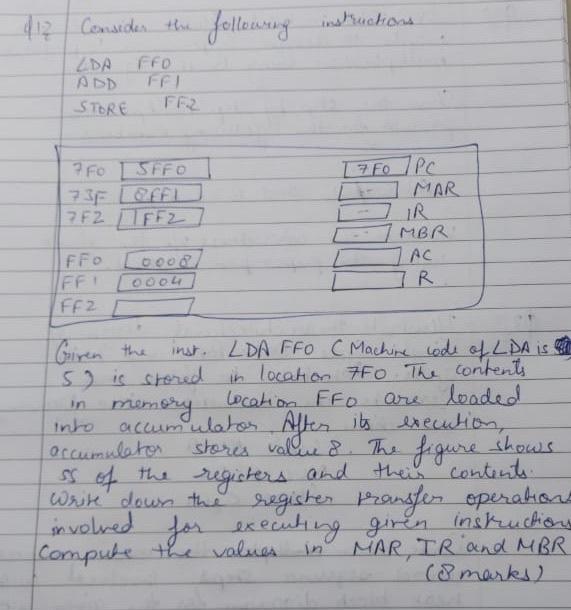 Q12 Consider the following instructions
LDA FF0
ADD FF1
STORE FF2
7F0 5FF0 7F0 PC
73F 8FF1 -- MAR
7F2 1FF2 -- IR
-- MBR
FF0 0008 AC
FF1 0004 R
FF2
Given the inst. LDA FF0 (Machine code of LDA is
5) is stored in location 7F0. The contents
in memory location FF0 are loaded
into accumulator. After its execution,
accumulator stores value 8. The figure shows
ss of the registers and their contents.
Write down the register transfer operations
involved for executing given instructions
Compute the values in MAR, IR and MBR
(8 marks)